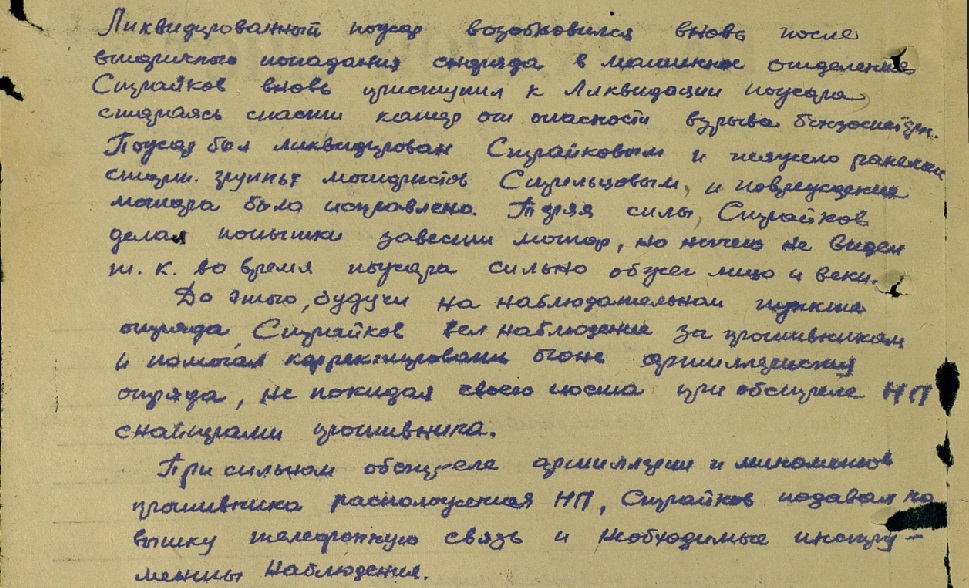 Ликвидированный пожар возобновился вновь после
вторичного попадания снаряда в машинное отделение
Струйков вновь приступил к ликвидации пожара
стараясь спасти катер от опасности взрыва бензоцистерн.
Пожар был ликвидирован Струйковым и тяжело раненым
старш. группы мотористов Стрельцовым, и повреждение
мотора было исправлено. Теряя силы, Струйков
делал попытки завести мотор, но ничего не видел
т. к. во время пожара сильно обжег лицо и веки.
До этого, будучи на наблюдательном пункте
отряда, Струйков вел наблюдение за противником
и помогал корректировать огонь артиллерии
отряда, не покидая своего поста при обстреле НП
снайперами противника.
При сильном обстреле артиллерии и минометов
противника расположения НП, Струйков подавал на
вышку телефонную связь и необходимые инстру-
менты наблюдения.